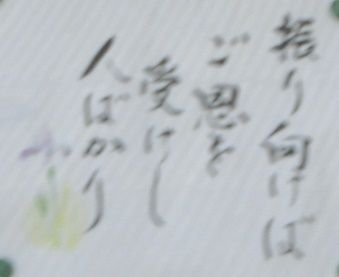 振り向けば
ご恩を
受けし
人ばかり